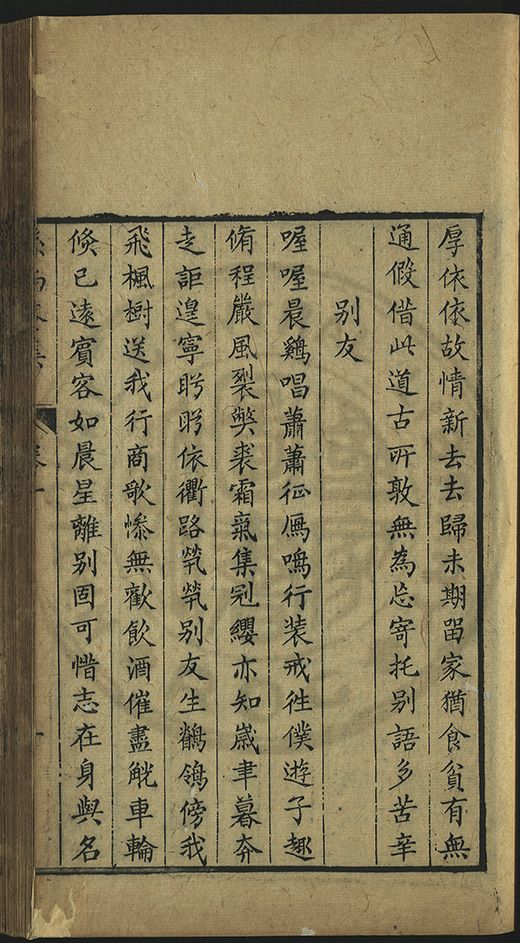 厚依依故情新去去歸未期留家猶食貧有無
通假借此道古所敦無為忘寄托别語多苦辛
别友
喔喔晨鷄唱蕭蕭征鴈鳴行装戒徃僕遊子趣
脩程嚴風裂獘裘霜氣集冠纓亦知嵗聿暮奔
走詎遑寧盻盻依衢路煢煢别友生鶺鴒傍我
飛楓樹送我行商歌慘無歡飲酒催盡觥車輪
倐已遠賓客如晨星離别固可惜志在身與名